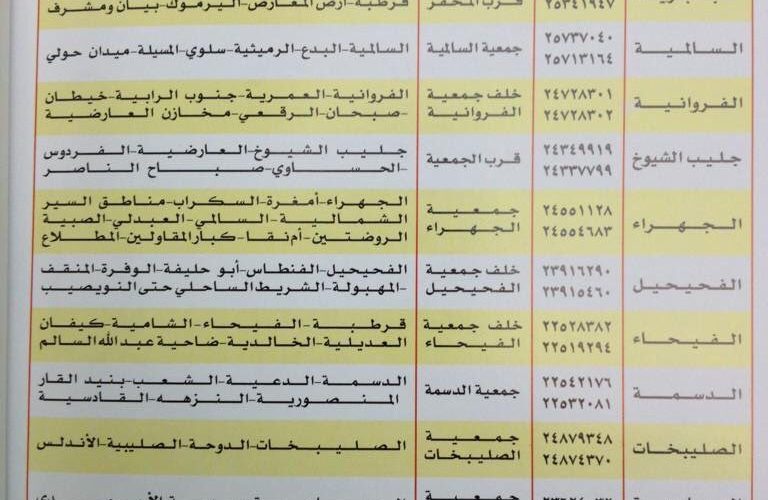 ٢٥٣٤١٩٤٧ قرب المخفر قرطبة-أرض المعارض-اليرموك-بيان ومشرف
السالمية
٢٥٧٣٧٠٤٠
٢٥٧١٣١٦٤
جمعية السالمية
السالمية-البدع-الرميثية-سلوي-المسيلة-ميدان حولي
الفروانية
٢٤٧٢٨٣٠١
٢٤٧٢٨٣٠٢
خلف جمعية
الفروانية
الفروانية-العمرية-جنوب الرابية-خيطان
-صبحان-الرقعي-مخازن العارضية
جليب الشيوخ
٢٤٣٤٩٩١٩
٢٤٣٣٧٧٩٩
قرب الجمعية
جليب الشيوخ-العارضية-الفردوس
-الحساوي-صباح الناصر
الجهراء
٢٤٥٥١١٢٨
٢٤٥٥٤٦٨٣
جمعية
الجهراء
الجهراء-أمغرة-السكراب-مناطق السير
الشمالية-السالمي-العبدلي-الصبية
الروضتين-أم نقا-كبار المقاولين-المطلاع
الفحيحيل
٢٣٩١٦٢٩٠
٢٣٩١٥٤٦٠
خلف جمعية
الفحيحيل
الفحيحيل-الفنطاس-أبو حليفة-الوفرة-المنقف
-المهبولة-الشريط الساحلي حتى النويصيب
الفيحاء
٢٢٥٢٨٣٨٢
٢٢٥١٩٢٩٤
خلف جمعية
الفيحاء
قرطبة-الفيحاء-الشامية-كيفان
العديلية-الخالدية-ضاحية عبدالله السالم
الدسمة
٢٢٥٤٢١٧٦
٢٢٥٣٢٠٨١
جمعية الدسمة
الدسمة-الدعية-الشعب-بنيد القار
المنصورية-النزهه-القادسية
الصليبخات
٢٤٨٧٩٣٤٨
٢٤٨٧٤٣٧٠
جمعية
الصليبخات
الصليبخات-الدوحة-الصليبية-الأندلس
جمعية